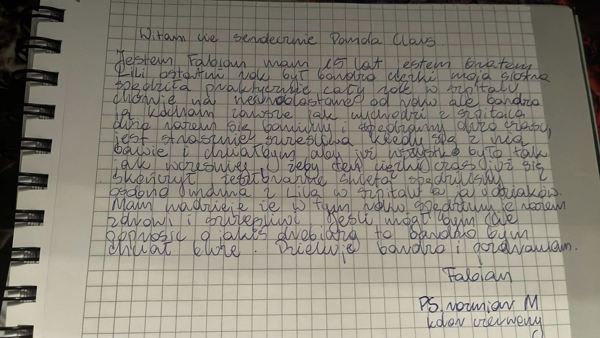 Witam cie serdecznie Panda Claus
Jestem Fabian mam 15 lat estem bratem
Lili ostatni rok był bardzo ciężki moja siostra
spędziła praktycznie cały rok w szpitalu
choruje na od roku ale bardzo
ją kocham zawsze jak wychodzi z szpitala
dużo razem się bawimy i spędzamy dużo czasu,
jest strasznie szczęśliwa kiedy się z nią
bawie i chciałbym aby już wszystko było tak
jak wcześniej i żeby ten ciężki czas już się
skończył zeszłoroczne święta spędziliśmy
osobno mama z Lilą w szpitalu a ja u dziadków.
Mam nadzieje że w tym roku spędzimy je razem
zdrowi i szczęśliwi jeśli mógł bym Cię
poprosić o jakiś drobiazg to bardzo bym
chciał bluze. Dziękuję bardzo i pozdrawiam.
Fabian
PS. rozmiar M
kolor czerwony